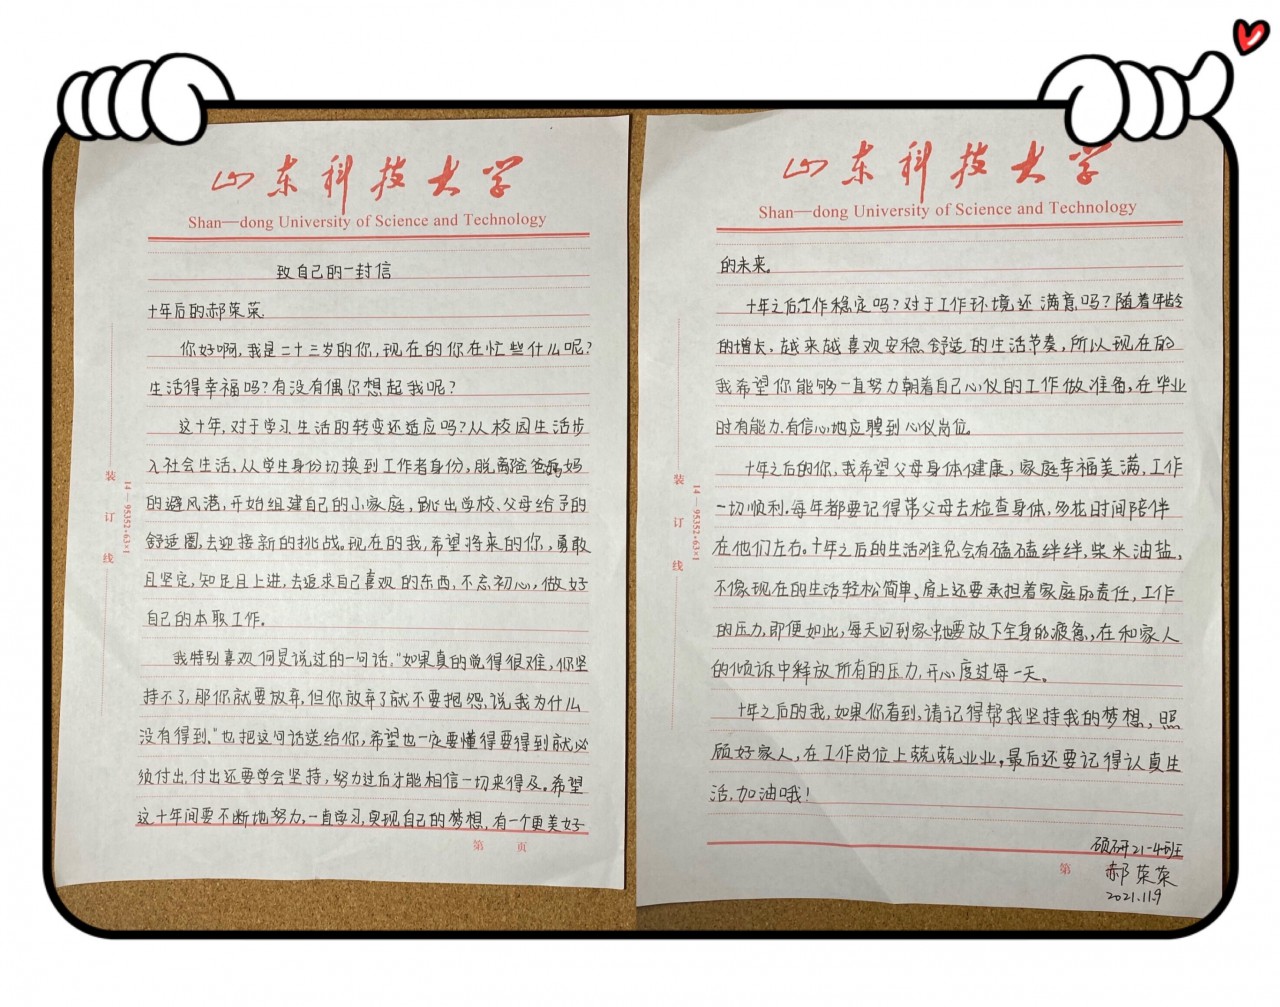 山东科技大学
Shan—dong University of Science and Technology
致自己的一封信
十年后的郝荣荣
你好啊，我是二十三岁的你，现在的你在忙些什么呢？
生活得幸福吗？有没有偶尔想起我呢？
这十年，对于学习生活的转变还适应吗？从校园生活步
入社会生活，从学生身份切换到工作者身份，脱离爸爸妈妈
的避风港，开始组建自己的小家庭，跳出学校、父母给予的
舒适圈，去迎接新的挑战。现在的我，希望将来的你，勇敢
且坚定，知足且上进，去追求自己喜欢的东西，不忘初心，做好
自己的本职工作。
我特别喜欢何炅说过的一句话，"如果真的觉得很难，你坚
持不了，那你就要放弃，但你放弃了就不要抱怨，说我为什么
没有得到。"也把这句话送给你，希望也一定要懂得要得到就必
须付出，付出还要学会坚持，努力过后才能相信一切来得及。希望
这十年间要不断地努力，一直学习，实现自己的梦想，有一个更美好
第 页
装
订
线
14—95352•63×1
山东科技大学
Shan—dong University of Science and Technology
的未来。
十年之后，工作稳定吗？对于工作环境还满意吗？随着年龄
的增长，越来越喜欢安稳舒适的生活节奏，所以现在的
我希望你能够一直努力朝着自己心仪的工作做准备，在毕业
时有能力、有信心地应聘到心仪岗位。
十年之后的你，我希望父母身体健康，家庭幸福美满，工作
一切顺利。每年都要记得带父母去检查身体，多花时间陪伴
在他们左右。十年之后的生活难免会有磕磕绊绊，柴米油盐，
不像现在的生活轻松简单，肩上还要承担着家庭的责任，工作
的压力，即便如此，每天回到家中也要放下全身的疲惫，在和家人
的倾诉中释放所有的压力，开心度过每一天。
十年之后的我，如果你看到，请记得帮我坚持我的梦想，照
顾好家人，在工作岗位上兢兢业业，最后还要记得认真生
活，加油哦！
硕研21-4班
第
郝荣荣
2021.11.9
装
订
线
14—95352•63×1